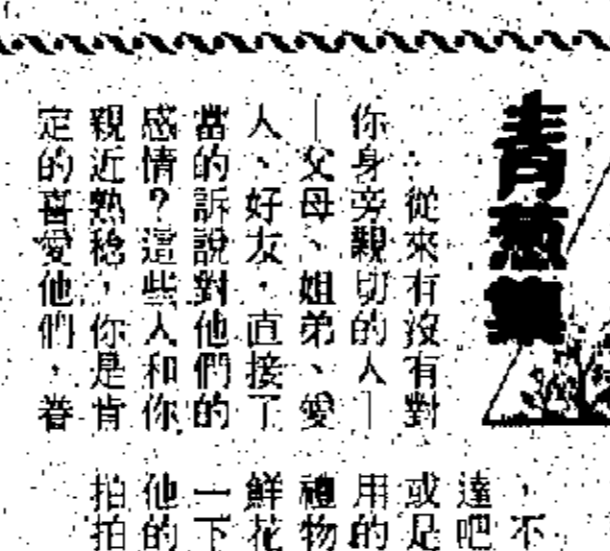 青蔥集
從來有沒有對
你身旁親切的人—
—父母、姐弟、愛
人、好友,直接了
當的訴說對他們的
感情?這些人和你
親近熟稔,你是肯
定的喜愛他們,眷
,不
達吧
或是
用的
禮物
鮮花
一下
他的
拍拍